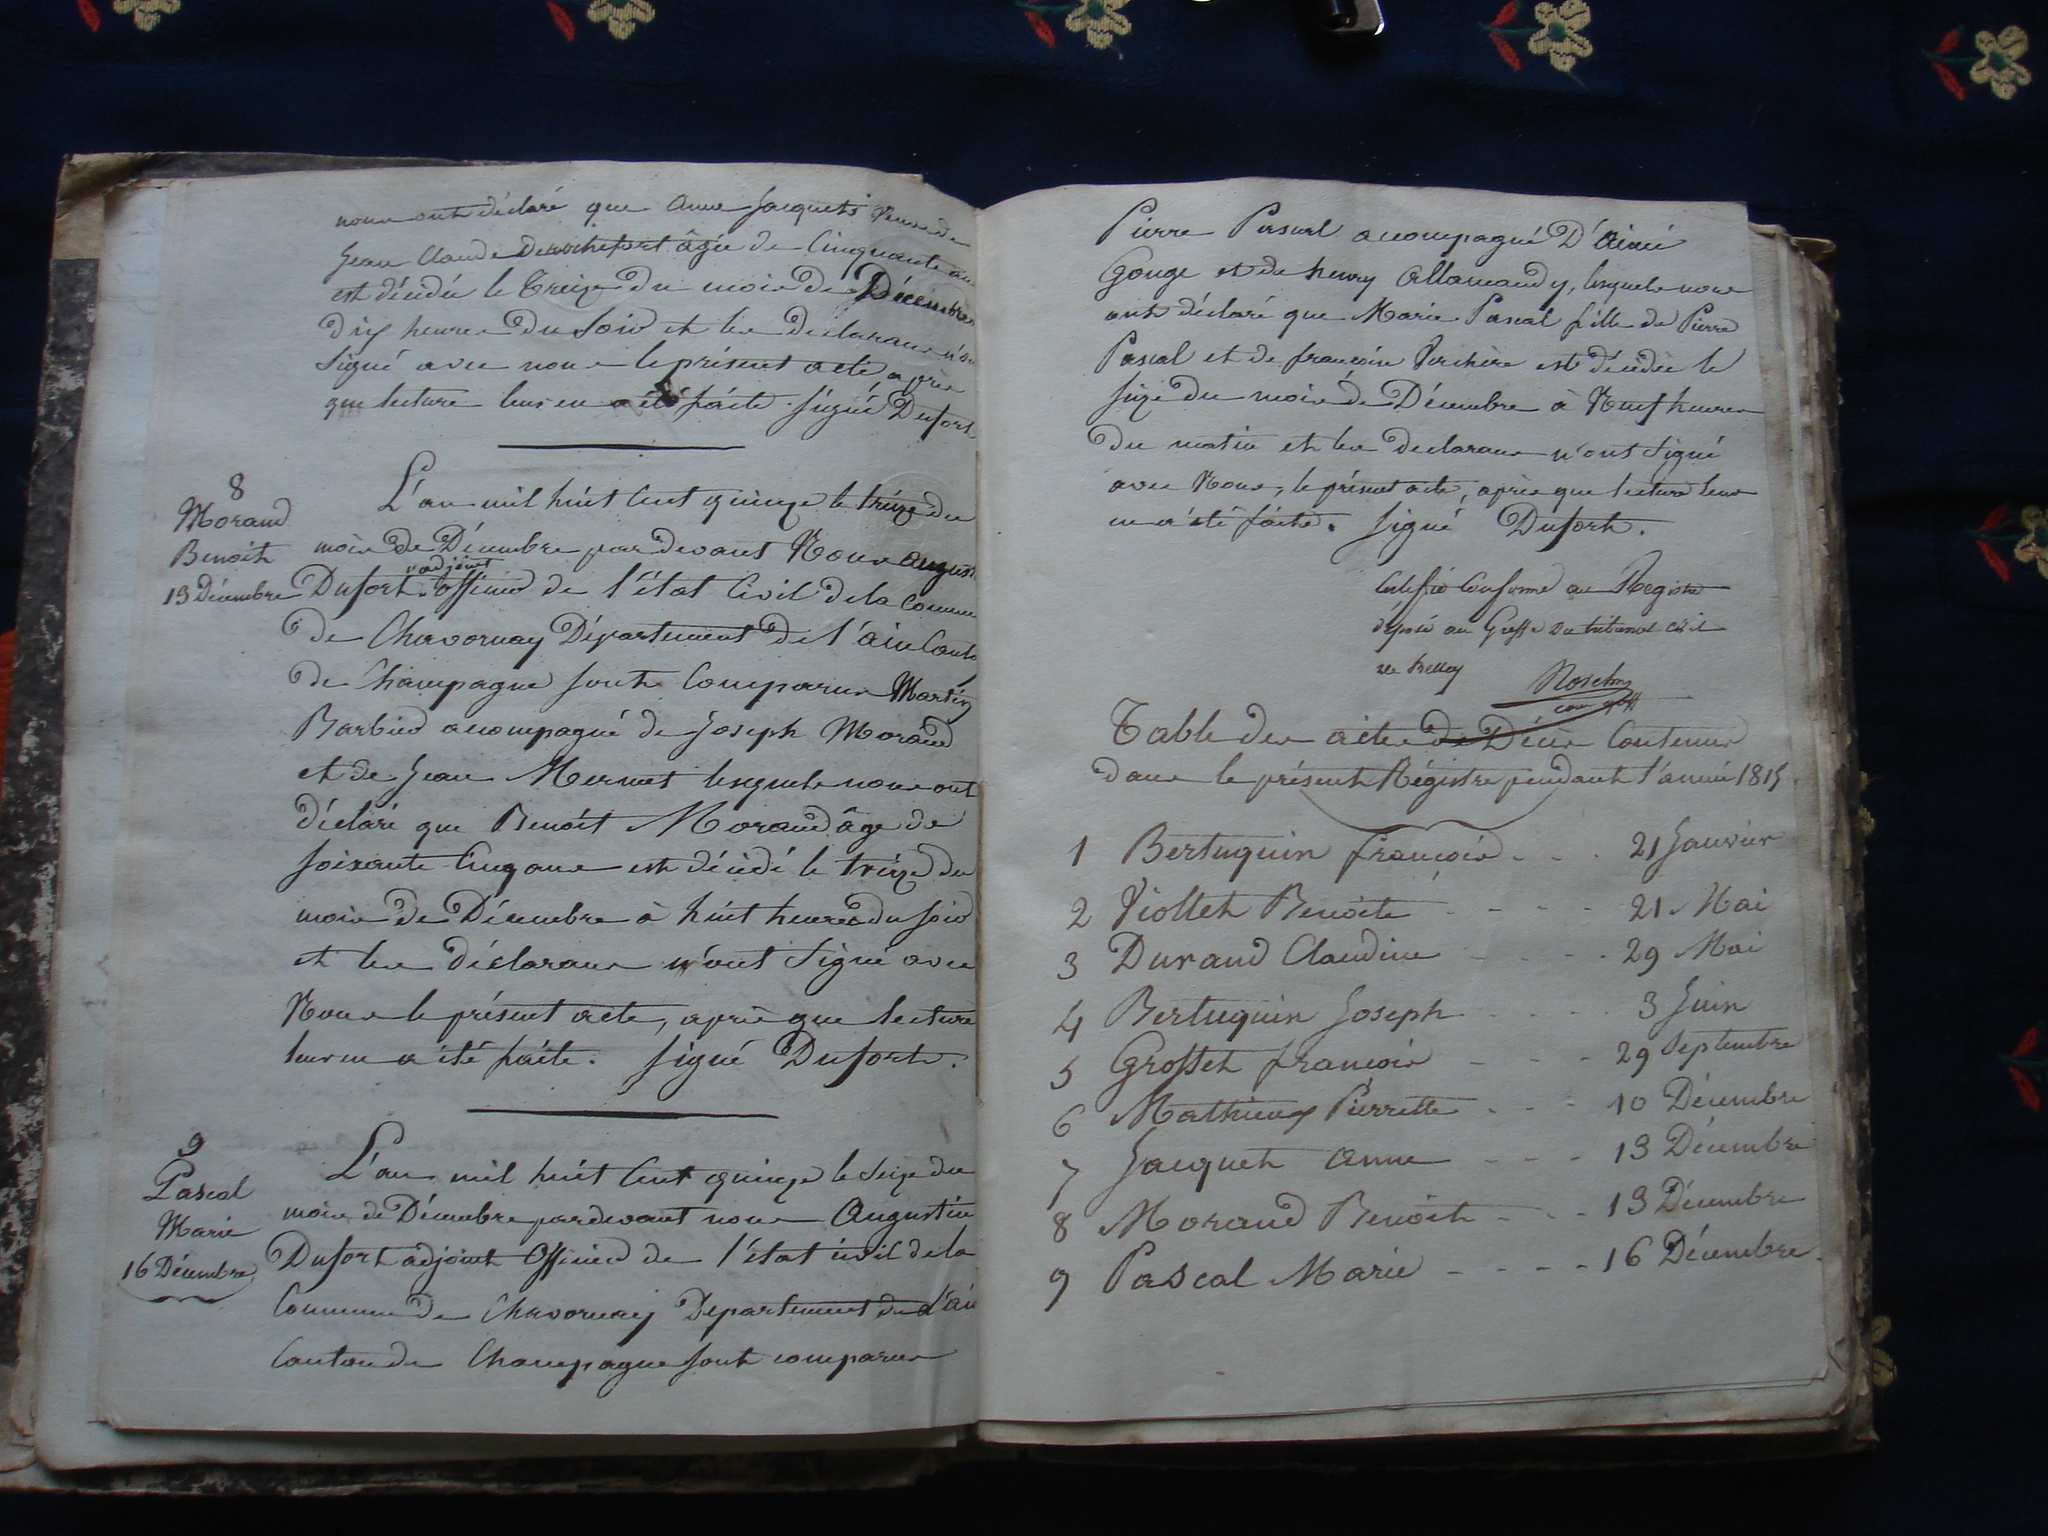 nous ont déclaré que Anne Jacquet Veuve de
Jean Claude Derochefort âgée de Cinquante ans
est décédée le treize du mois de Décembre
dix heures du soir et les declarans n'ont
signé avec nous le présent acte après
que lecture leur en a été faite. signé Dufort
8
Morand
Benoit
13 Décembre
L'an mil huit cent quinze le treize du
mois de Décembre par devant Nous august
adjoint
Dufort officier de l'état Civil de la Commune
de Chavornay Département de l'ain Canton
de Champagne sont Comparus Martin
Barbier acompagné de Joseph Morand
et de Jean Mermet lesquels nous ont
déclaré que Benoit Morand âgé de
soixante Cinq ans est décédé le treize du
mois de Décembre à huit heures du soir
et les déclarans n'ont signé avec
Nous le présent acte, après que lecture
leur en a été faite. signé Dufort.
9
Pascal
Marie
16 Décembre
L'an mil huit cent quinze le seize du
mois de Décembre pardevant nous Augustin
Dufort adjoint Officier de l'état civil de la
Commune de Chavornay Departement de L'ain
Canton de Champagne sont comparus
Pierre Pascal acompagné D'Aimé
Gouge et de henry Allamandy, lesquels nous
ont déclaré que Marie Pascal fille de Pierre
Pascal et de françoise Porchère est décédée le
seize du mois de Décembre à Neuf heures
du matin et les declarans n'ont signé
avec Nous, le présent acte, après que lecture leur
en a été faite. signé Dufort.
Certifié Conforme au Régistre
déposé au Greffe du tribunal civil
de Belley
Table des actes de Décès Contenus
dans le présent Régistre pendant l'année 1815.
1 Bertuquin françois . . . 21 Janvier
2 Viollet Benoite . . . . 21 Mai
3 Durand Claudine . . . . 29 Mai
4 Bertuquin Joseph . . . . 3 Juin
5 Grosset françois . . . 29 Septembre
6 Mathieux Pierrette . . . 10 Décembre
7 Jacquet Anne . . . 13 Décembre
8 Morand Benoit . . . 13 Décembre
9 Pascal Marie . . . . 16 Décembre.